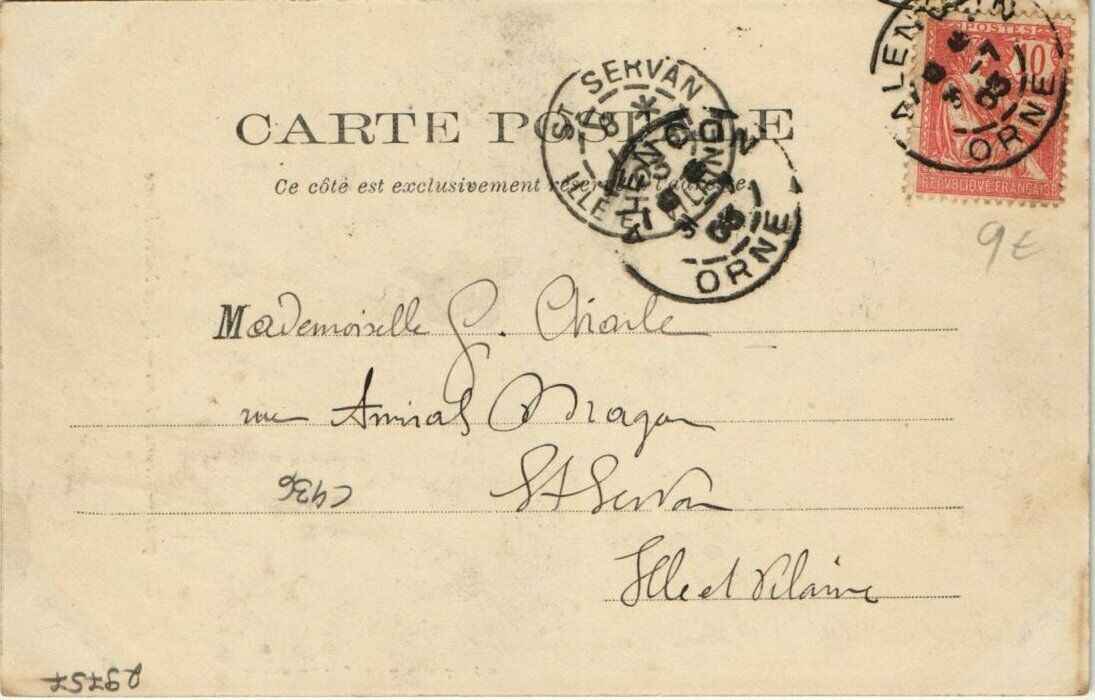 CARTE POSTALE
Ce côté est exclusivement réservé à l'adresse.
ST SERVAN
ILLE ET VILAINE
ALENCON
ORNE
ALENCON
ORNE
POSTES
10
REPVBLIQVE FRANÇAISE
9€
Mademoiselle G.
rue Amiral Magon
St Servan
C436
Ille et Vilaine